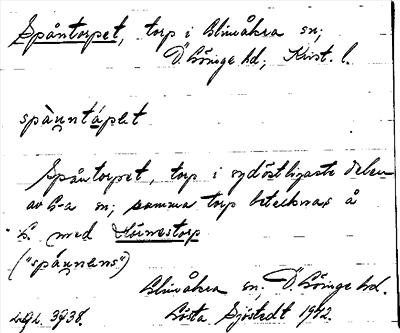 Spåntorpet, torp i Glimåkra sn;
Ö. Göinge hd; Krist. l.
spånntåpet
Spåntorpet, torp i sydöstligaste delen
av G-a sn; samma torp betecknas å
K. med Hörnestorp
("spånnens")
Glimåkra sn, Ö. Göinge hd.
Lugd. 3938. Gösta Sjöstedt 1942.